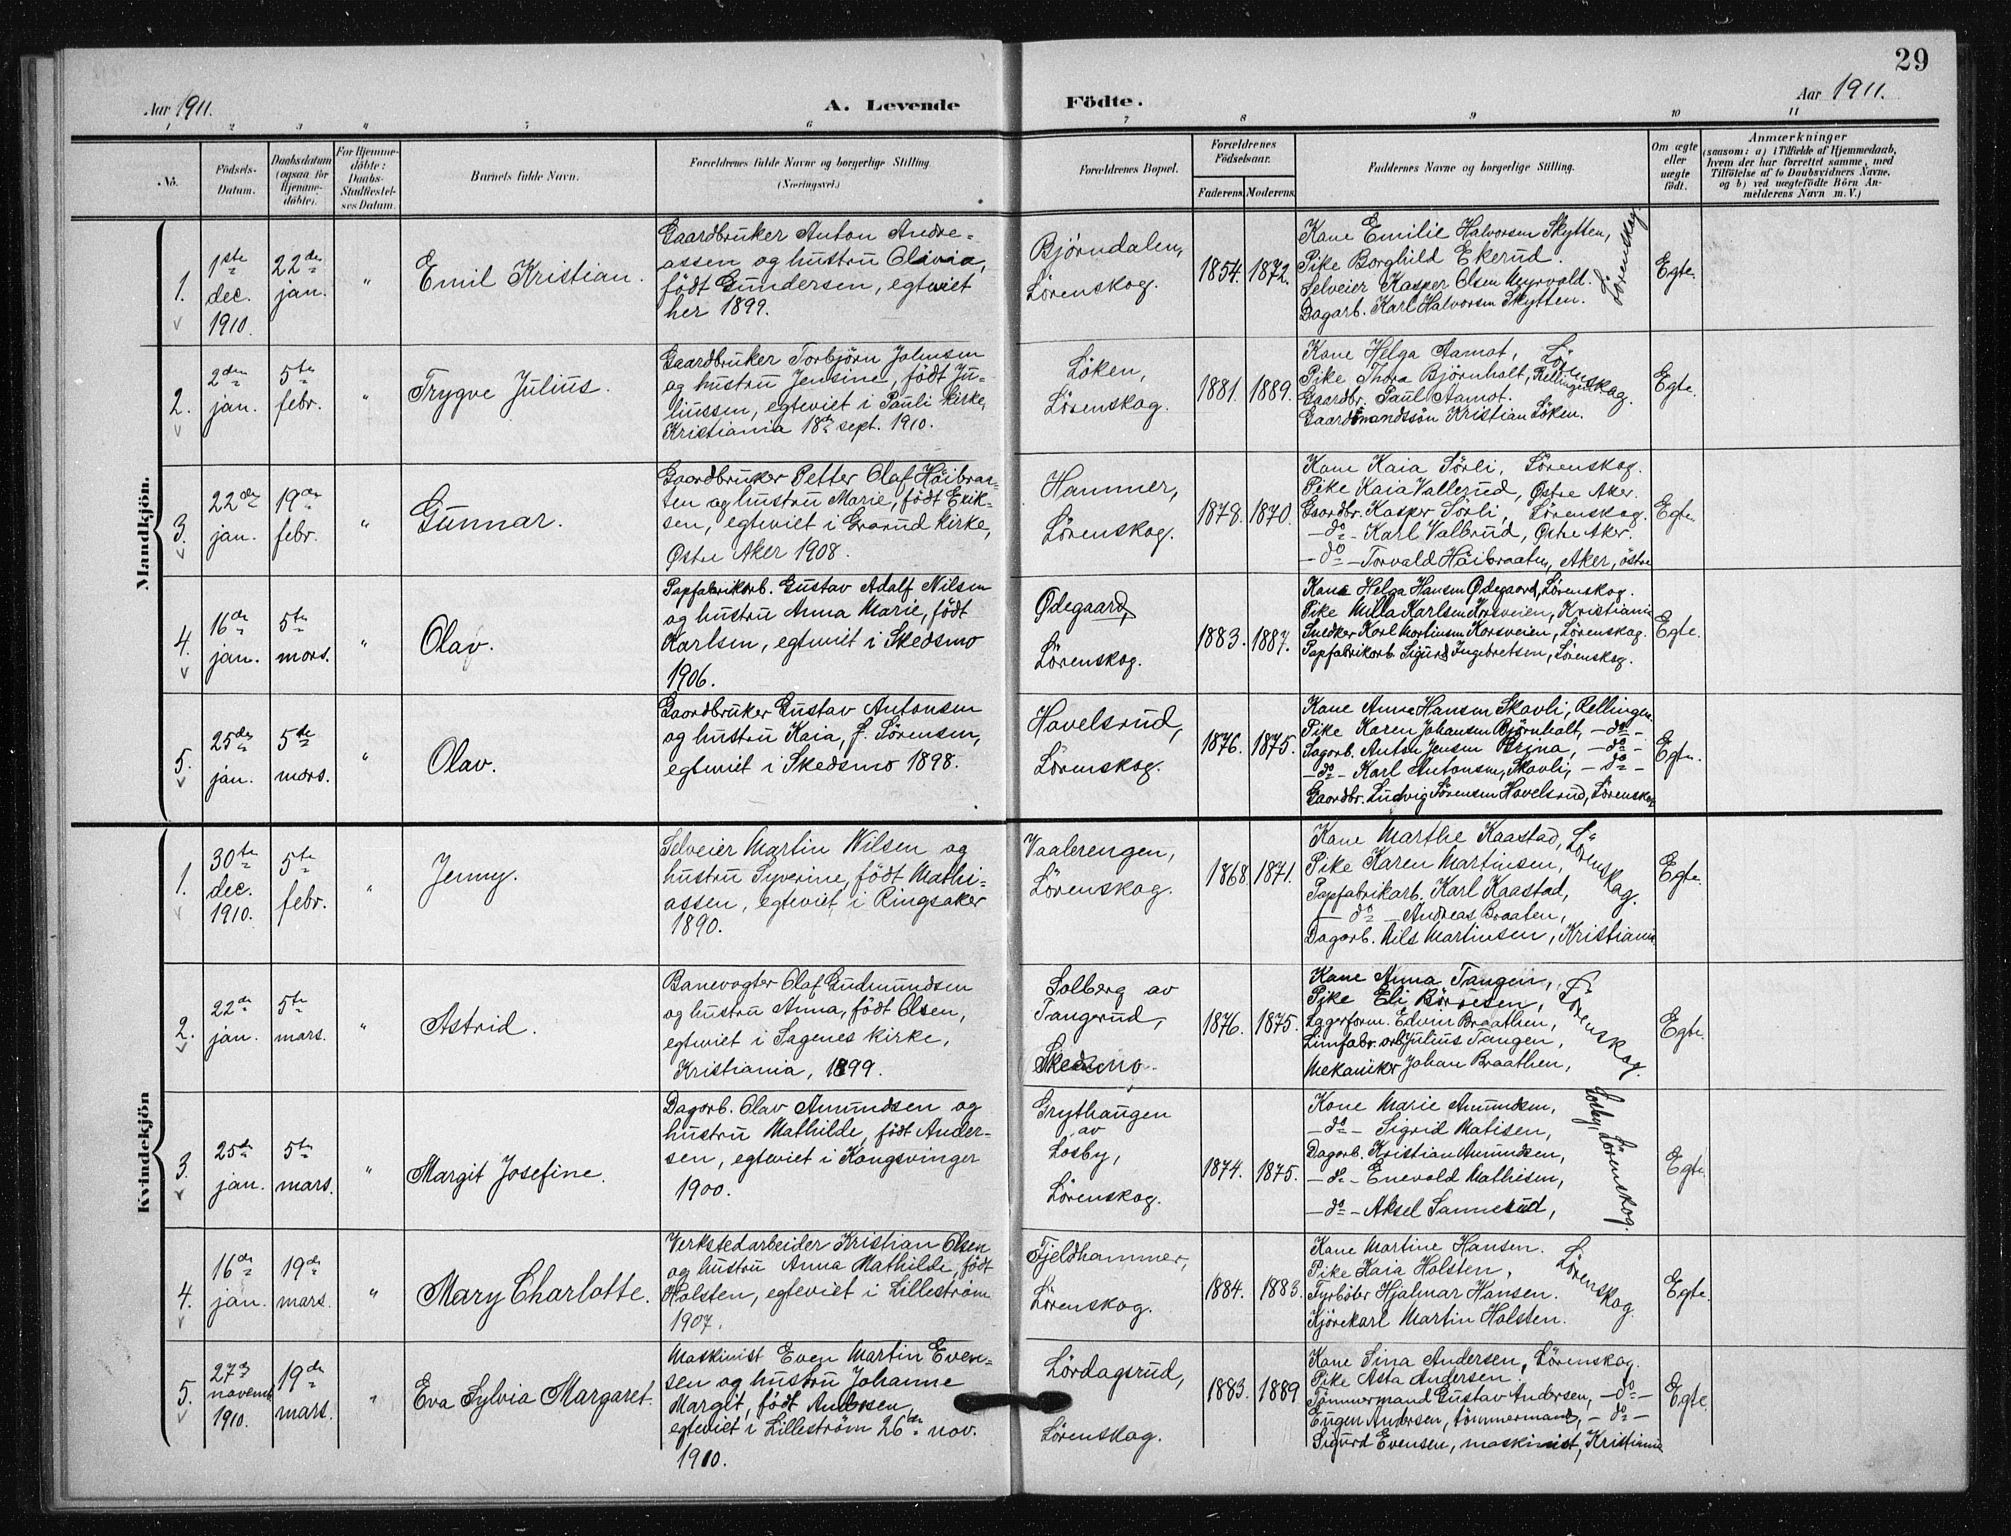 29
Aar 1911.
A. Levende Födte.
Aar 1911.
1 2 3 4 5 6 7 8 9 10 11
No.
Födsels-Datum.
Daabsdatum (ogsaa for Hjemme-döbte).
For Hjemme-döbte: Daabs-Stadfæstel-ses Datum.
Barnets fulde Navn.
Forældrenes fulde Navne og borgerlige Stilling. (Næringsvei.)
Forældrenes Bopæl.
Forældrenes Födselsaar.
Faderens. Moderens.
Faddernes Navne og borgerlige Stilling.
Om ægte eller uægte födt.
Anmærkninger
(saasom: a) i Tilfælde af Hjemmedaab, hvem der har forrettet samme, med Tilföielse af to Daabsvidners Navne, og b) ved uægtefödte Börn An-melderens Navn m. V.)
Mandkjön.
1.
1ste dec. 1910.
22de jan.
"
Emil Kristian.
Gaardbruker Anton Andre-
assen og hustru Olivia,
født Gundersen, egteviet
her 1899.
Bjørndalen,
Lørenskog.
1854. 1872.
Kone Emilie Halvorsen Skytten,
Pike Borghild Ekerud.
Selveier Kasper Olsen Myrvold.
Dagarb. Karl Halvorsen Skytten.
Lørenskog
Egte.
2.
2den jan.
5te febr.
"
Trygve Julius.
Gaardbruker Torbjørn Johnsen
og hustru Jensine, født Ju-
liussen, egteviet i Pauli kirke,
Kristiania 18de sept. 1910.
Løken,
Lørenskog.
1881. 1889.
Kone Helga Aamot,
Pike Thora Bjørnholt, Rellingen
Gaardbr. Paul Aamot.
Gaardmandssøn Kristian Løken.
Lørenskog.
Egte.
3.
22de jan.
19de febr.
"
Gunnar.
Gaardbruker Petter Olaf Høibraa-
ten og hustru Marie, født Erik-
sen, egteviet i Grorud kirke,
Østre Aker 1908.
Hammer,
Lørenskog.
1878. 1870.
Kone Kaia Sørli, Lørenskog.
Pike Kaia Vallerud, Østre Aker.
Gaardbr. Kasper Sørli, Lørenskog.
-do- Karl Valbrud, Østre Aker.
-do- Torvald Høibraaten, Aker, østre
Egte.
4.
16de jan.
5te mars.
"
Olav.
Papfabrikarb. Gustav Adolf Nilsen
og hustru Anna Marie, født
Karlsen, egteviet i Skedsmo
1906.
Ødegaard,
Lørenskog.
1883. 1887.
Kone Helga Hansen Ødegaard, Lørenskog.
Pike Milla Karlsen Korsveien, Kristiania
Snedker Karl Martinsen Korsveien, Lørenskog.
Papfabrikarb. Sigurd Ingebretsen, Lørenskog.
Egte.
5.
25de jan.
5te mars.
"
Olav.
Gaardbruker Gustav Antonsen
og hustru Kaia, f. Sørensen,
egteviet i Skedsmo 1898.
Hovelsrud,
Lørenskog.
1876. 1875.
Kone Anna Hansen Skovli, Rellingen
Pike Karen Johansen Bjørnholt, -do-
Sagarb. Anton Jensen Bryna, -do-
-do- Karl Antonsen, Skovli, -do-
Gaardbr. Ludvig Sørensen Hovelsrud, Lørenskog
Egte.
Kvindekjön
1.
30te dec. 1910.
5te febr.
"
Jenny.
Selveier Martin Nilsen og
hustru Syverine, født Mathi-
assen, egteviet i Ringsaker
1890.
Vaalerengen,
Lørenskog.
1868. 1871.
Kone Marthe Kaastad,
Pike Karen Martinsen,
Papfabrikarb. Karl Kaastad,
-do- Andreas Braaten,
Dagarb. Nils Martinsen, Kristiania
Lørenskog.
Egte.
2.
22de jan.
5te mars.
"
Astrid.
Banevogter Olaf Gudmundsen
og hustru Anna, født Olsen,
egteviet i Sagenes kirke,
Kristiania, 1899.
Solberg av
Tangerud,
Skedsmo.
1876. 1875.
Kone Anna Tangen,
Pike Eli Børresen,
Lagerform. Edvin Braathen,
Limfabr.arb. Julius Tangen,
Mekaniker Johan Braathen,
Lørenskog.
Egte.
3.
25de jan.
5te mars.
"
Margit Josefine.
Dagarb. Olav Amundsen og
hustru Mathilde, født Ander-
sen, egteviet i Kongsvinger
1900.
Grythaugen
av
Losby,
Lørenskog.
1874. 1875.
Kone Marie Amundsen,
-do- Sigrid Matisen,
Dagarb. Kristian Amundsen,
-do- Enevold Mathisen,
-do- Aksel Sannerud,
Losby, Lørenskog.
Egte.
4.
16de jan.
19de mars.
"
Mary Charlotte.
Verkstedarbeider Kristian Olsen
og hustru Anna Mathilde, født
Holsten, egteviet i Lillestrøm
1907.
Fjeldhammer,
Lørenskog.
1884. 1883.
Kone Martine Hansen.
Pike Kaia Holsten,
Fyrbøter Hjalmar Hansen.
Kjørekarl Martin Holsten.
Lørenskog.
Egte.
5.
27de novemb. 1910.
19de mars.
"
Eva Sylvia Margaret.
Maskinist Even Martin Even-
sen og hustru Johanne
Margit, født Andersen,
egteviet i Lillestrøm 26de nov.
1910.
Lørdagsrud,
Lørenskog.
1883. 1889
Kone Sina Andersen, Lørenskog.
Pike Asta Andersen.
Tømmermand Gustav Andersen, -do-
Eugen Andersen, tømmermand, -do-
Sigurd Evensen, maskinist, Kristiania
Egte.